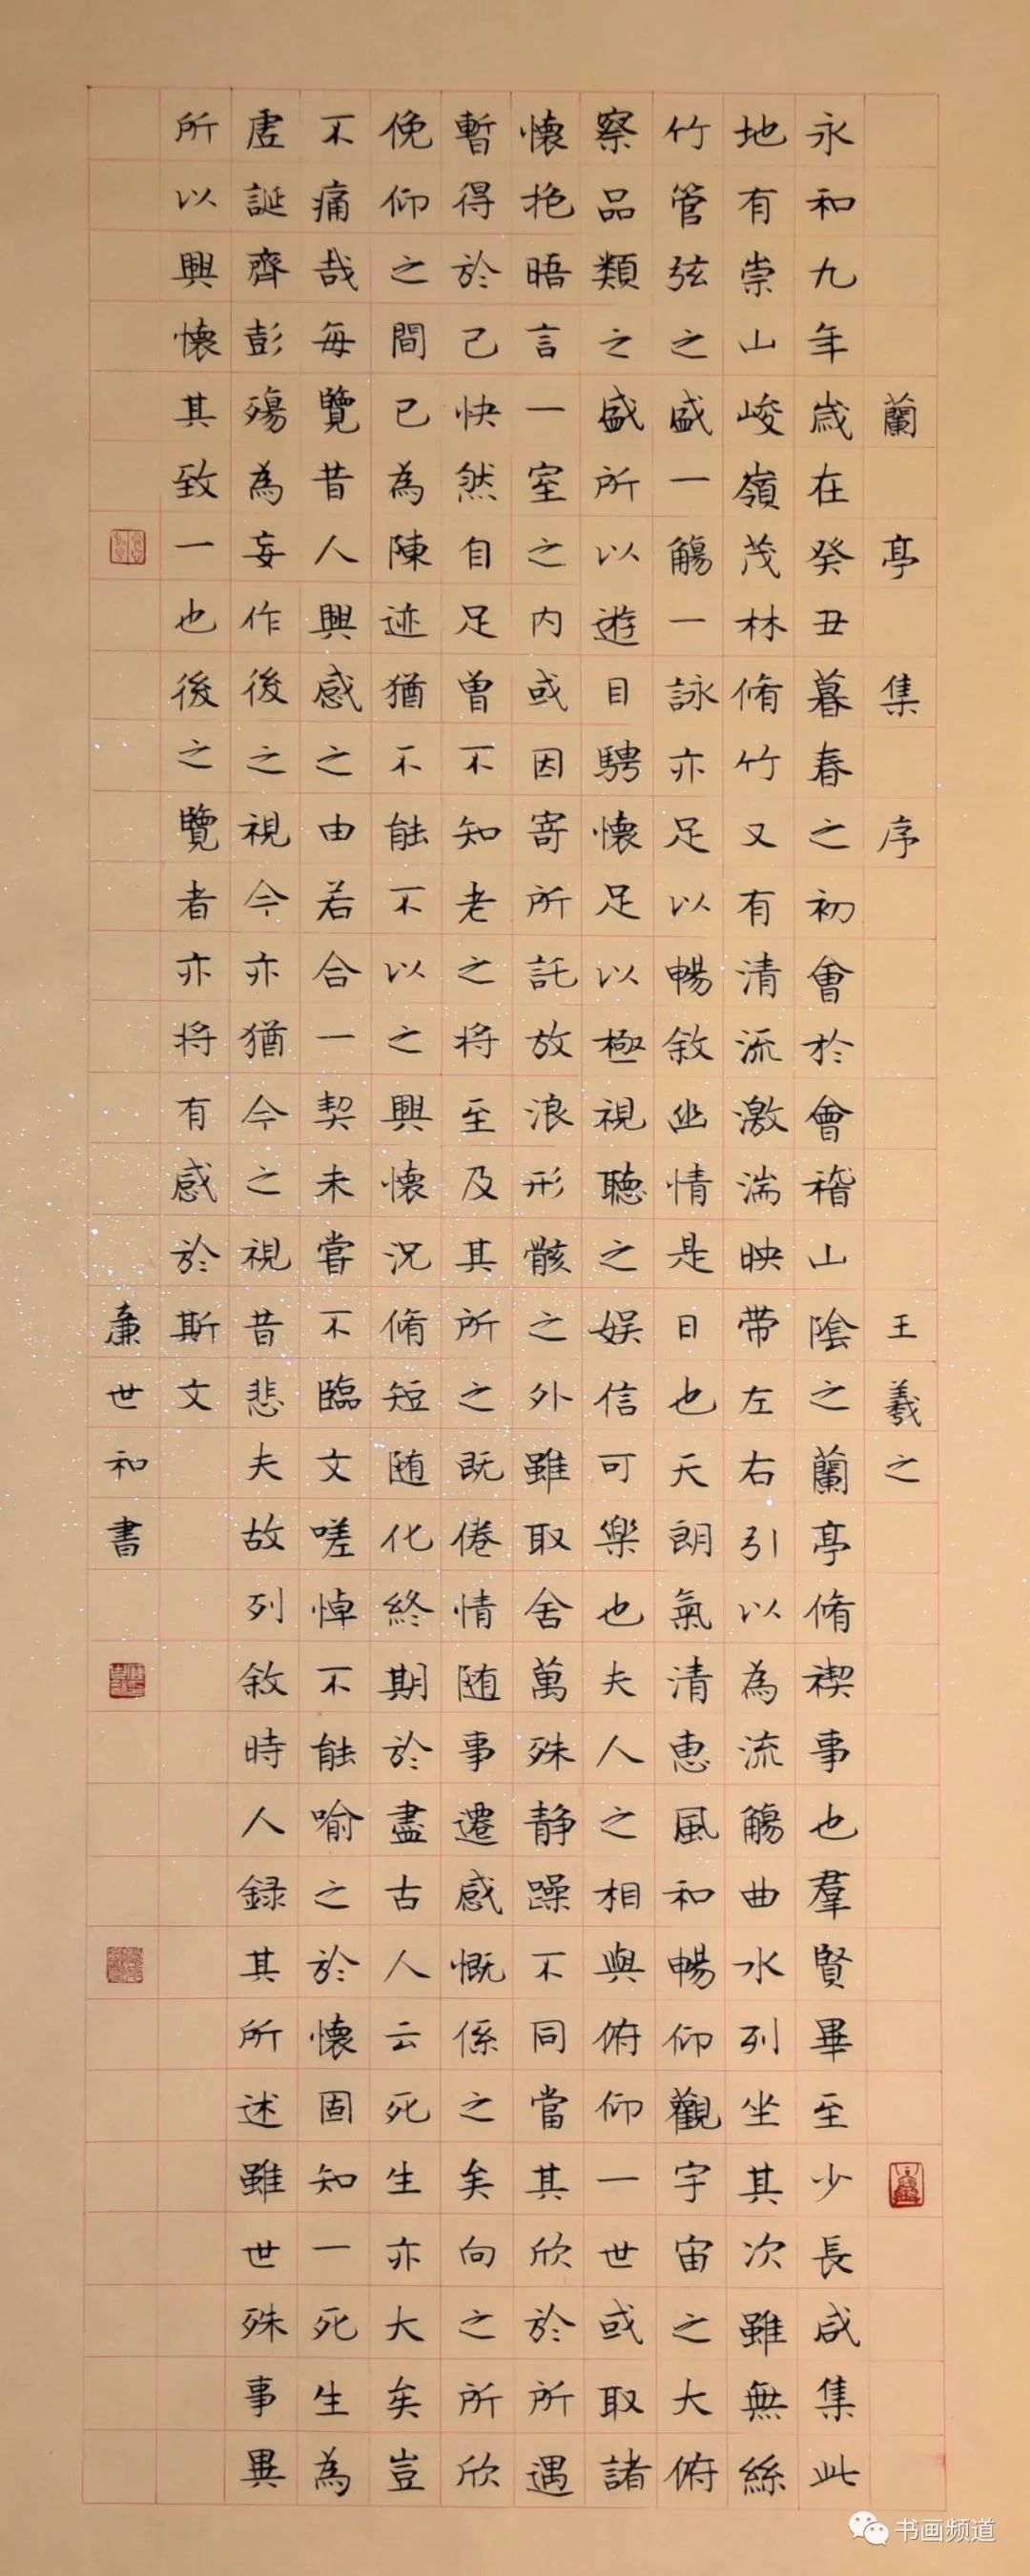 蘭亭集序 王羲之
永和九年歲在癸丑暮春之初會於會稽山陰之蘭亭脩禊事也羣賢畢至少長咸集此
地有崇山峻嶺茂林脩竹又有清流激湍映帶左右引以為流觴曲水列坐其次雖無絲
竹管弦之盛一觴一詠亦足以暢敘幽情是日也天朗氣清惠風和暢仰觀宇宙之大俯
察品類之盛所以遊目騁懷足以極視聽之娛信可樂也夫人之相與俯仰一世或取諸
懷抱晤言一室之內或因寄所託放浪形骸之外雖取舍萬殊静躁不同當其欣於所遇
暫得於己快然自足曾不知老之將至及其所之既倦情随事遷感慨係之矣向之所欣
俛仰之間已為陳迹猶不能不以之興懷況脩短随化終期於盡古人云死生亦大矣豈
不痛哉每覽昔人興感之由若合一契未嘗不臨文嗟悼不能喻之於懷固知一死生為
虛誕齊彭殤為妄作後之視今亦猶今之視昔悲夫故列敘時人録其所述雖世殊事異
所以興懷其致一也後之覽者亦將有感於斯文
廉世和書
书画频道